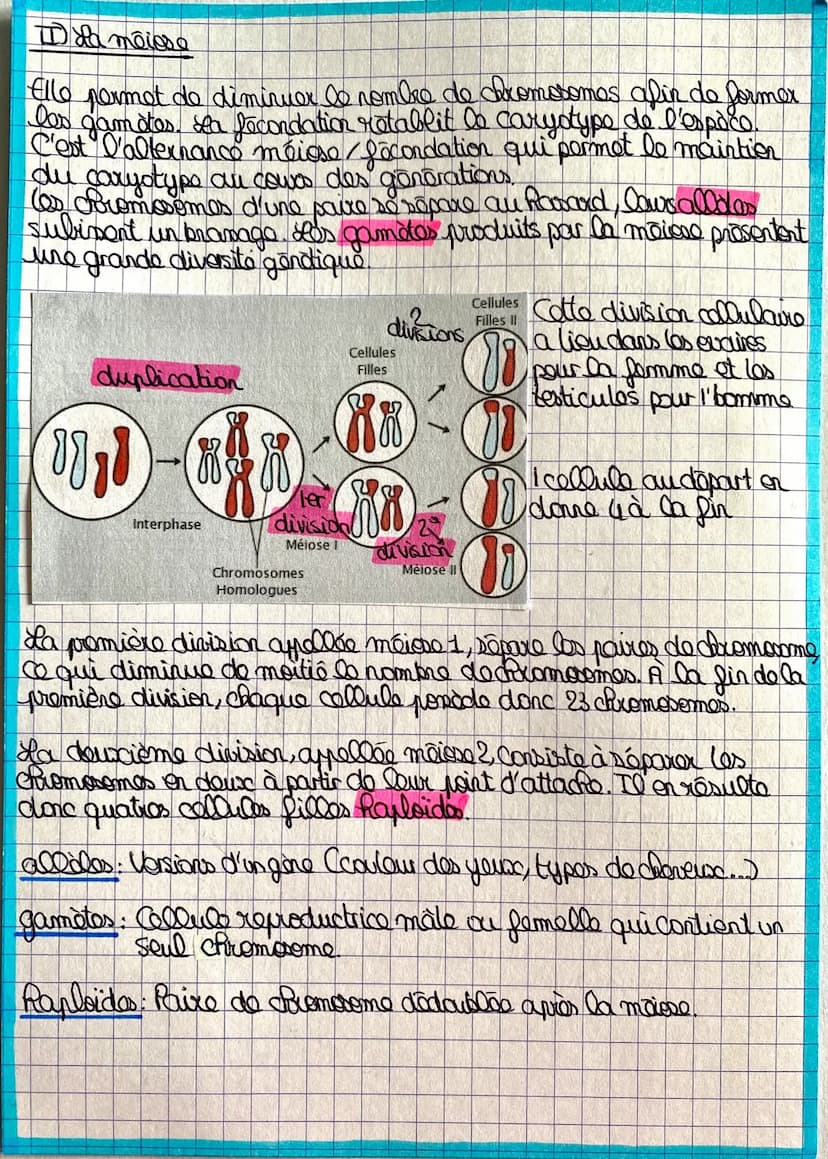 II) La méiose
Elle permet de diminuer le nombre de chromosomes afin de former
les gamètes. La fécondation rétablit le caryotype de l'espèce.
C'est l'alternance méiose/fécondation qui permet le maintien
du caryotype au cours des générations.
Les chromosomes d'une paire se sépare au hasard, leurs allèles
subissent un brassage. Les gamètes produits par la méiose présentent
une grande diversité génétique.
duplication
Interphase
Chromosomes
Homologues
1er
division
Méiose I
Cellules
Filles
2
divisions
2e
division
Méiose II
Cellules
Filles II
Cette division cellulaire
a lieu dans les ovaires
pour la femme et les
testicules pour l'homme
1 cellule au départ en
donne 4 à la fin
La première division appellée méiose 1, sépare les paires de chromosome,
ce qui diminue de moitié le nombre de chromosomes. À la fin de la
première division, chaque cellule possède donc 23 chromosomes.
La deuxième division, appellée méiose 2, consiste à séparer les
chromosomes en deux à partir de leur point d'attache. Il en résulte
donc quatres cellules filles haploïdes.
allèles : Versions d'un gène (couleur des yeux, types de cheveux...)
gamètes : Cellule reproductrice mâle ou femelle qui contient un
seul chromosome.
Haploïdes : Paire de chromosome dédoublée après la méiose.